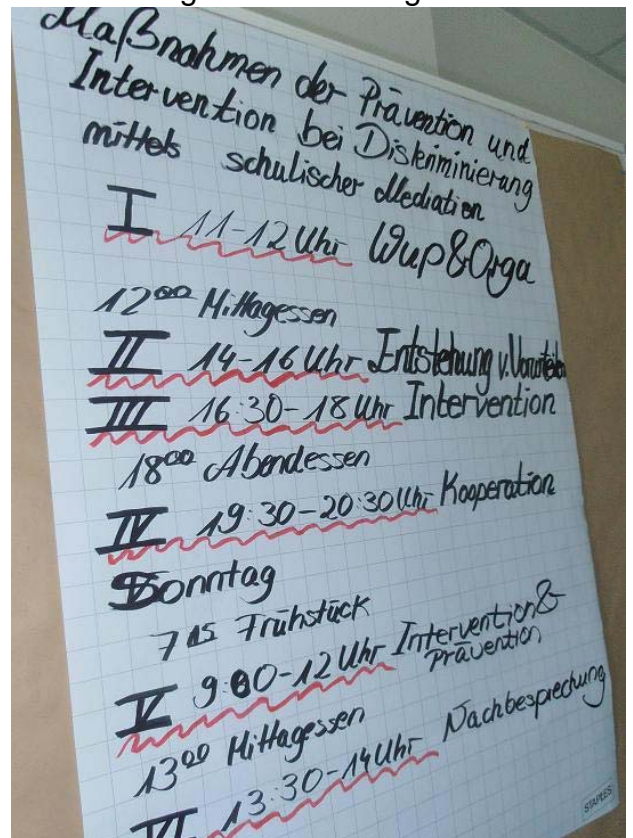 Maßnahmen der Prävention und
Intervention bei Diskriminierung
mittels schulischer Mediation
I 11-12 Uhr Wup&Orga
12⁰⁰ Mittagessen
II 14-16 Uhr Entstehung v. Vorurteilen
III 16:30-18 Uhr Intervention
18⁰⁰ Abendessen
IV 19:30-20:30 Uhr Kooperation
Sonntag
7⁴⁵ Frühstück
V 9:00-12 Uhr Intervention &
Prävention
13⁰⁰ Mittagessen
VI 13:30-14 Uhr Nachbesprechung
STAPLES